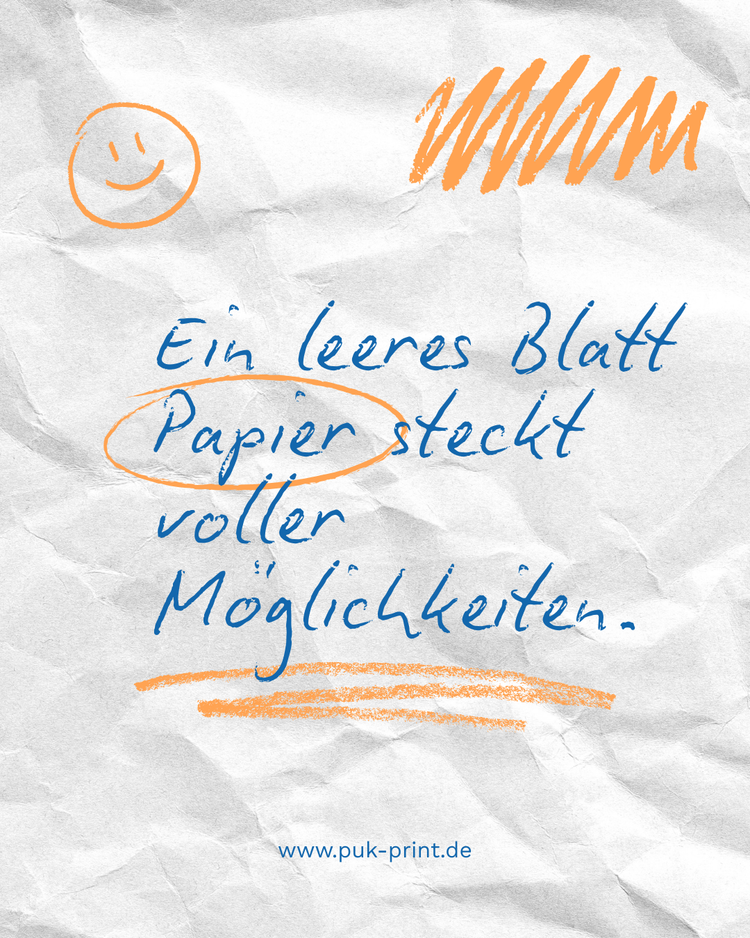 Ein leeres Blatt
Papier steckt
voller
Möglichkeiten.
www.puk-print.de